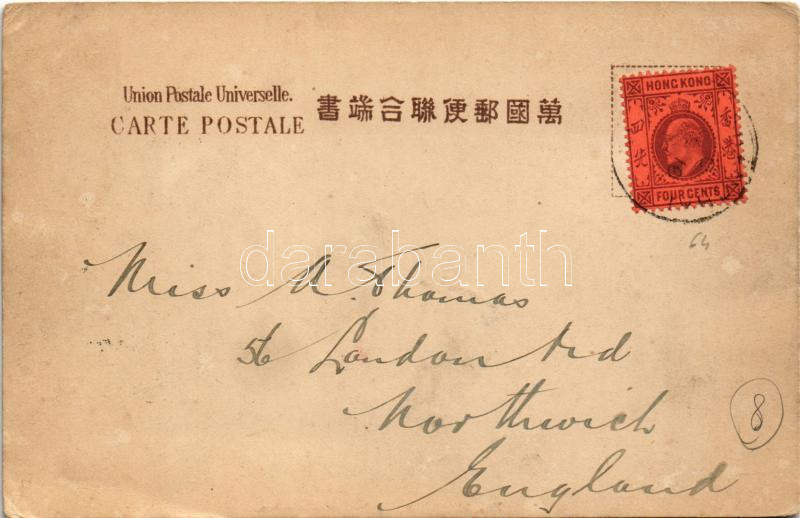 Union Postale Universelle.
CARTE POSTALE
書端合聯便郵國萬
HONG KONG
四先
香港
FOUR CENTS
64
darabanth
Miss A. Thomas
56 London Rd
Northwich
England
8